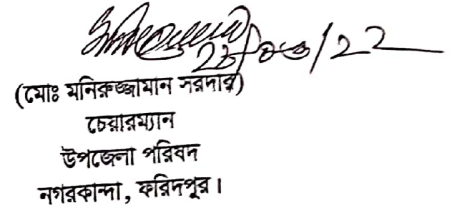 ২৮/০৩/২২
(মোঃ মনিরুজ্জামান সরদার)
চেয়ারম্যান
উপজেলা পরিষদ
নগরকান্দা, ফরিদপুর।